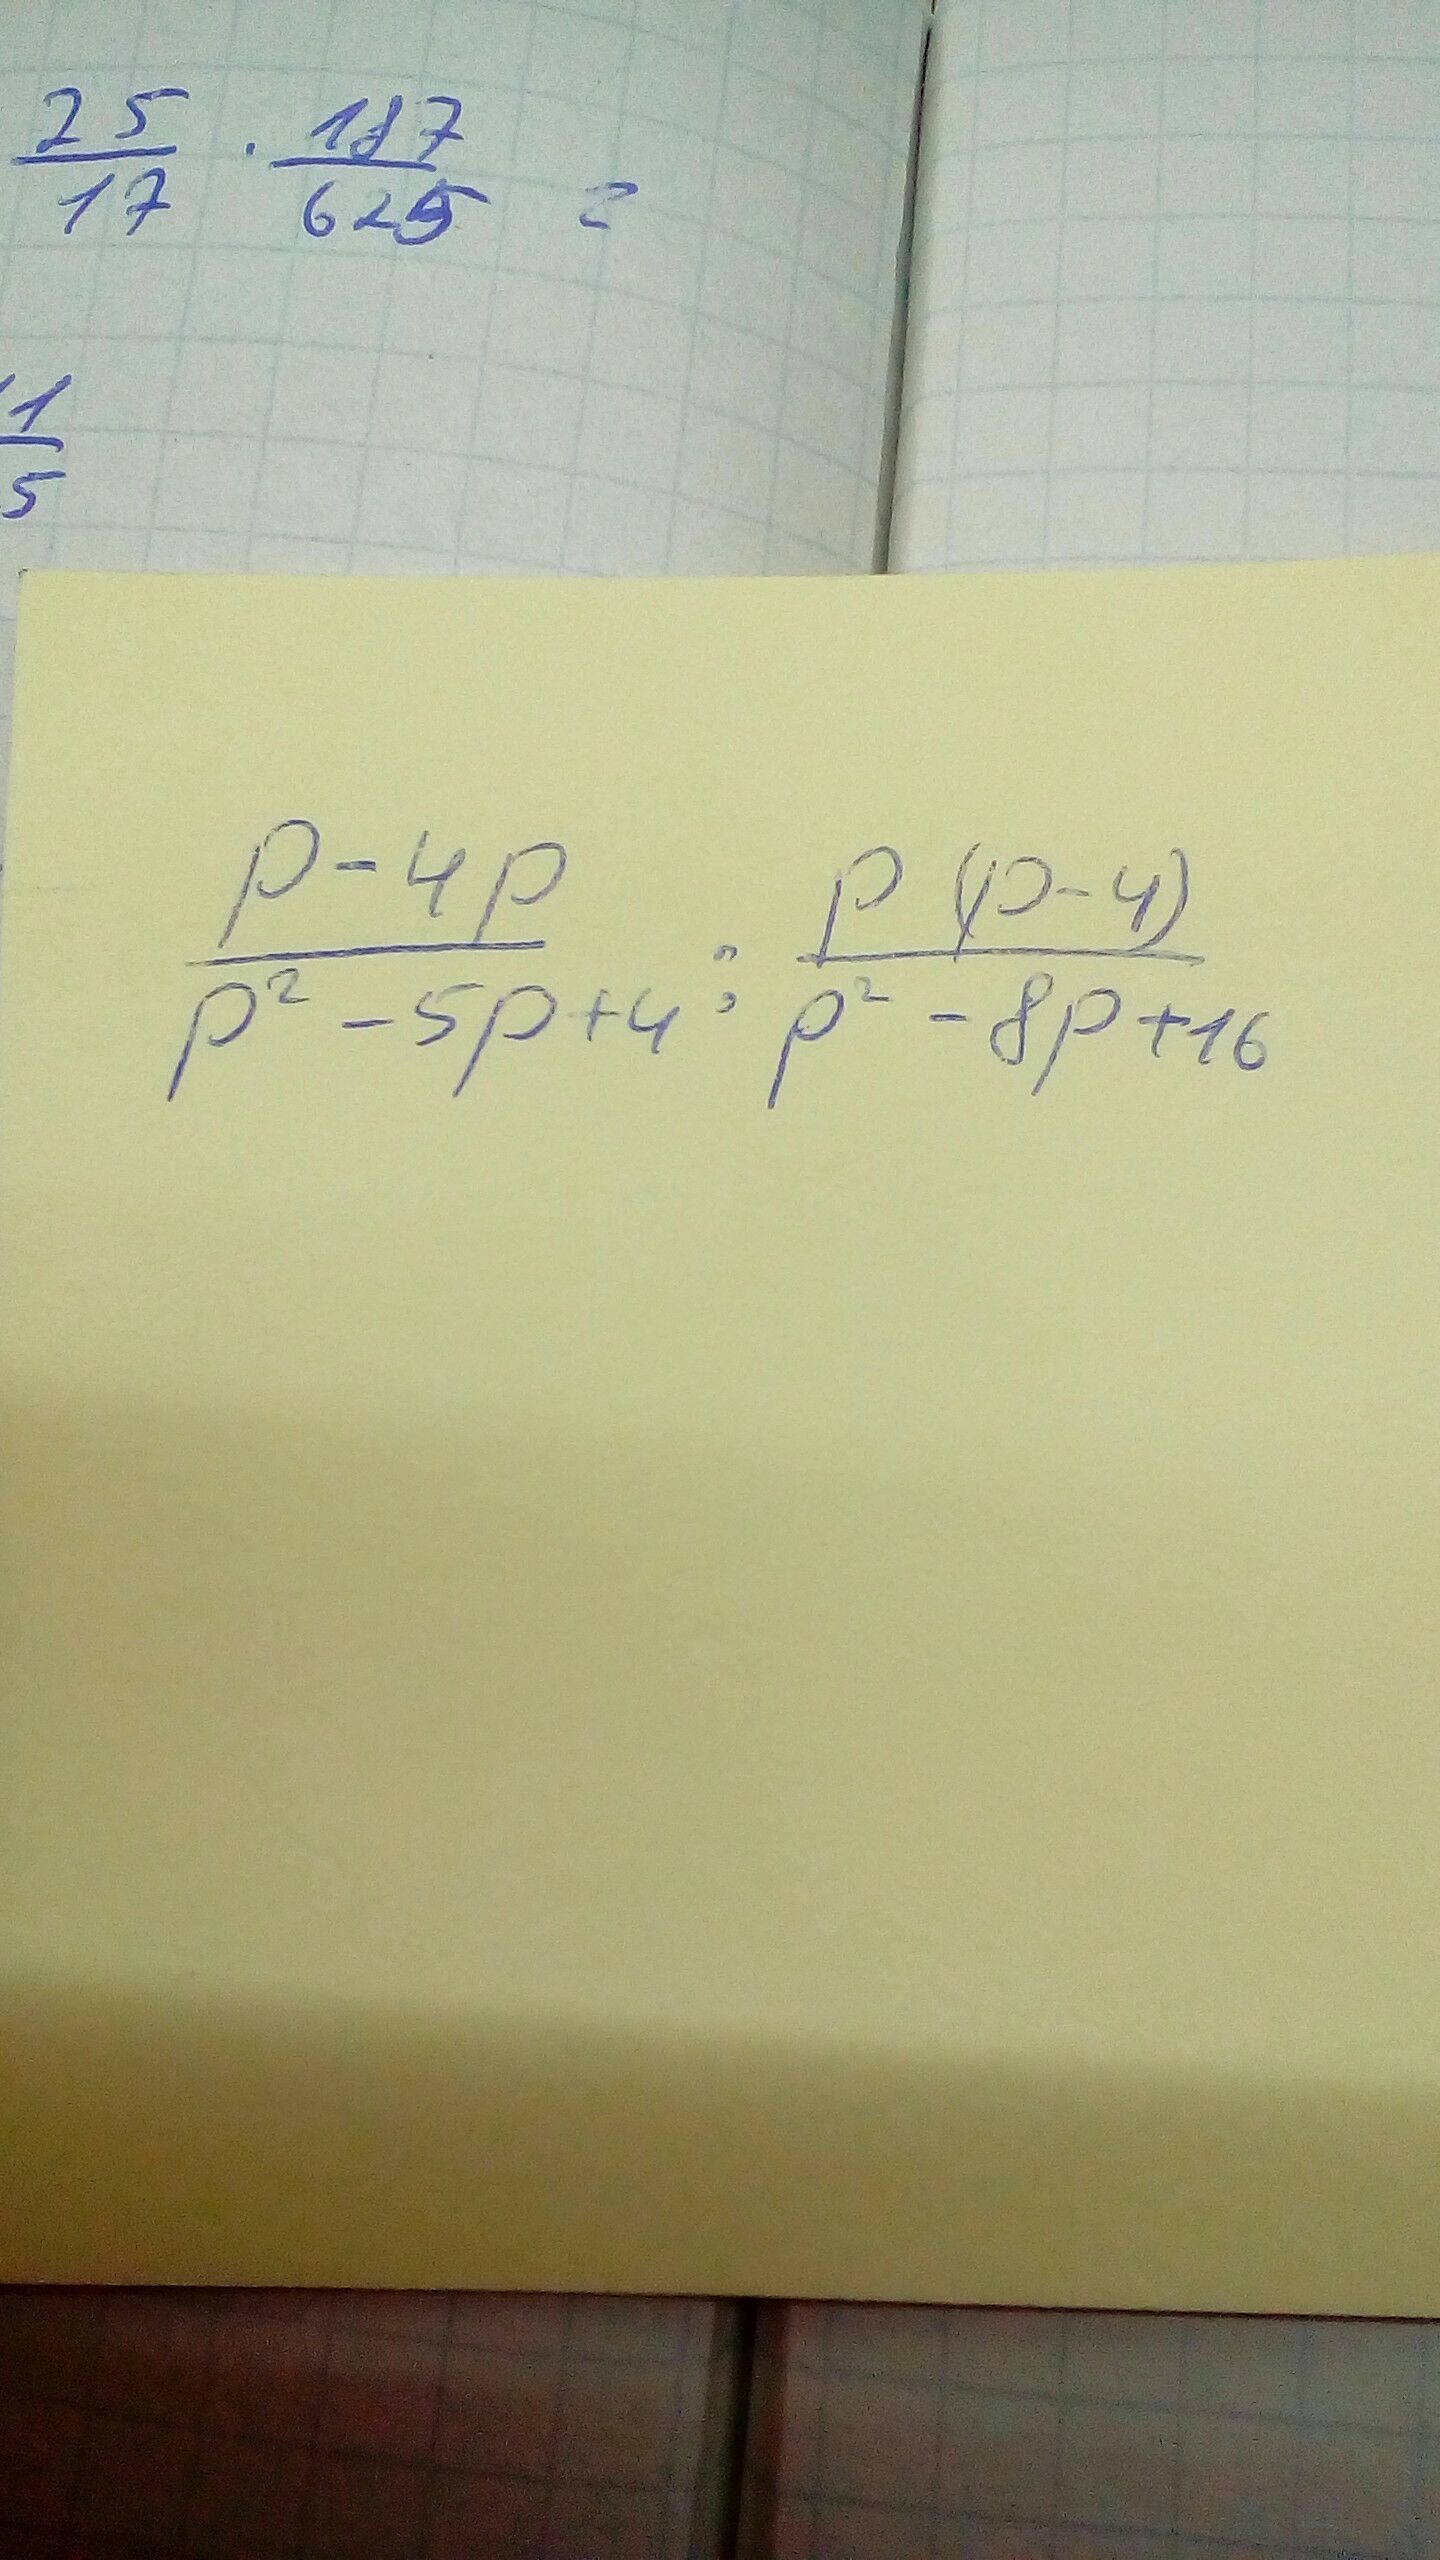 25/17 · 187/625 =
11/5
p-4p/p²-5p+4 : p(p-4)/p²-8p+16